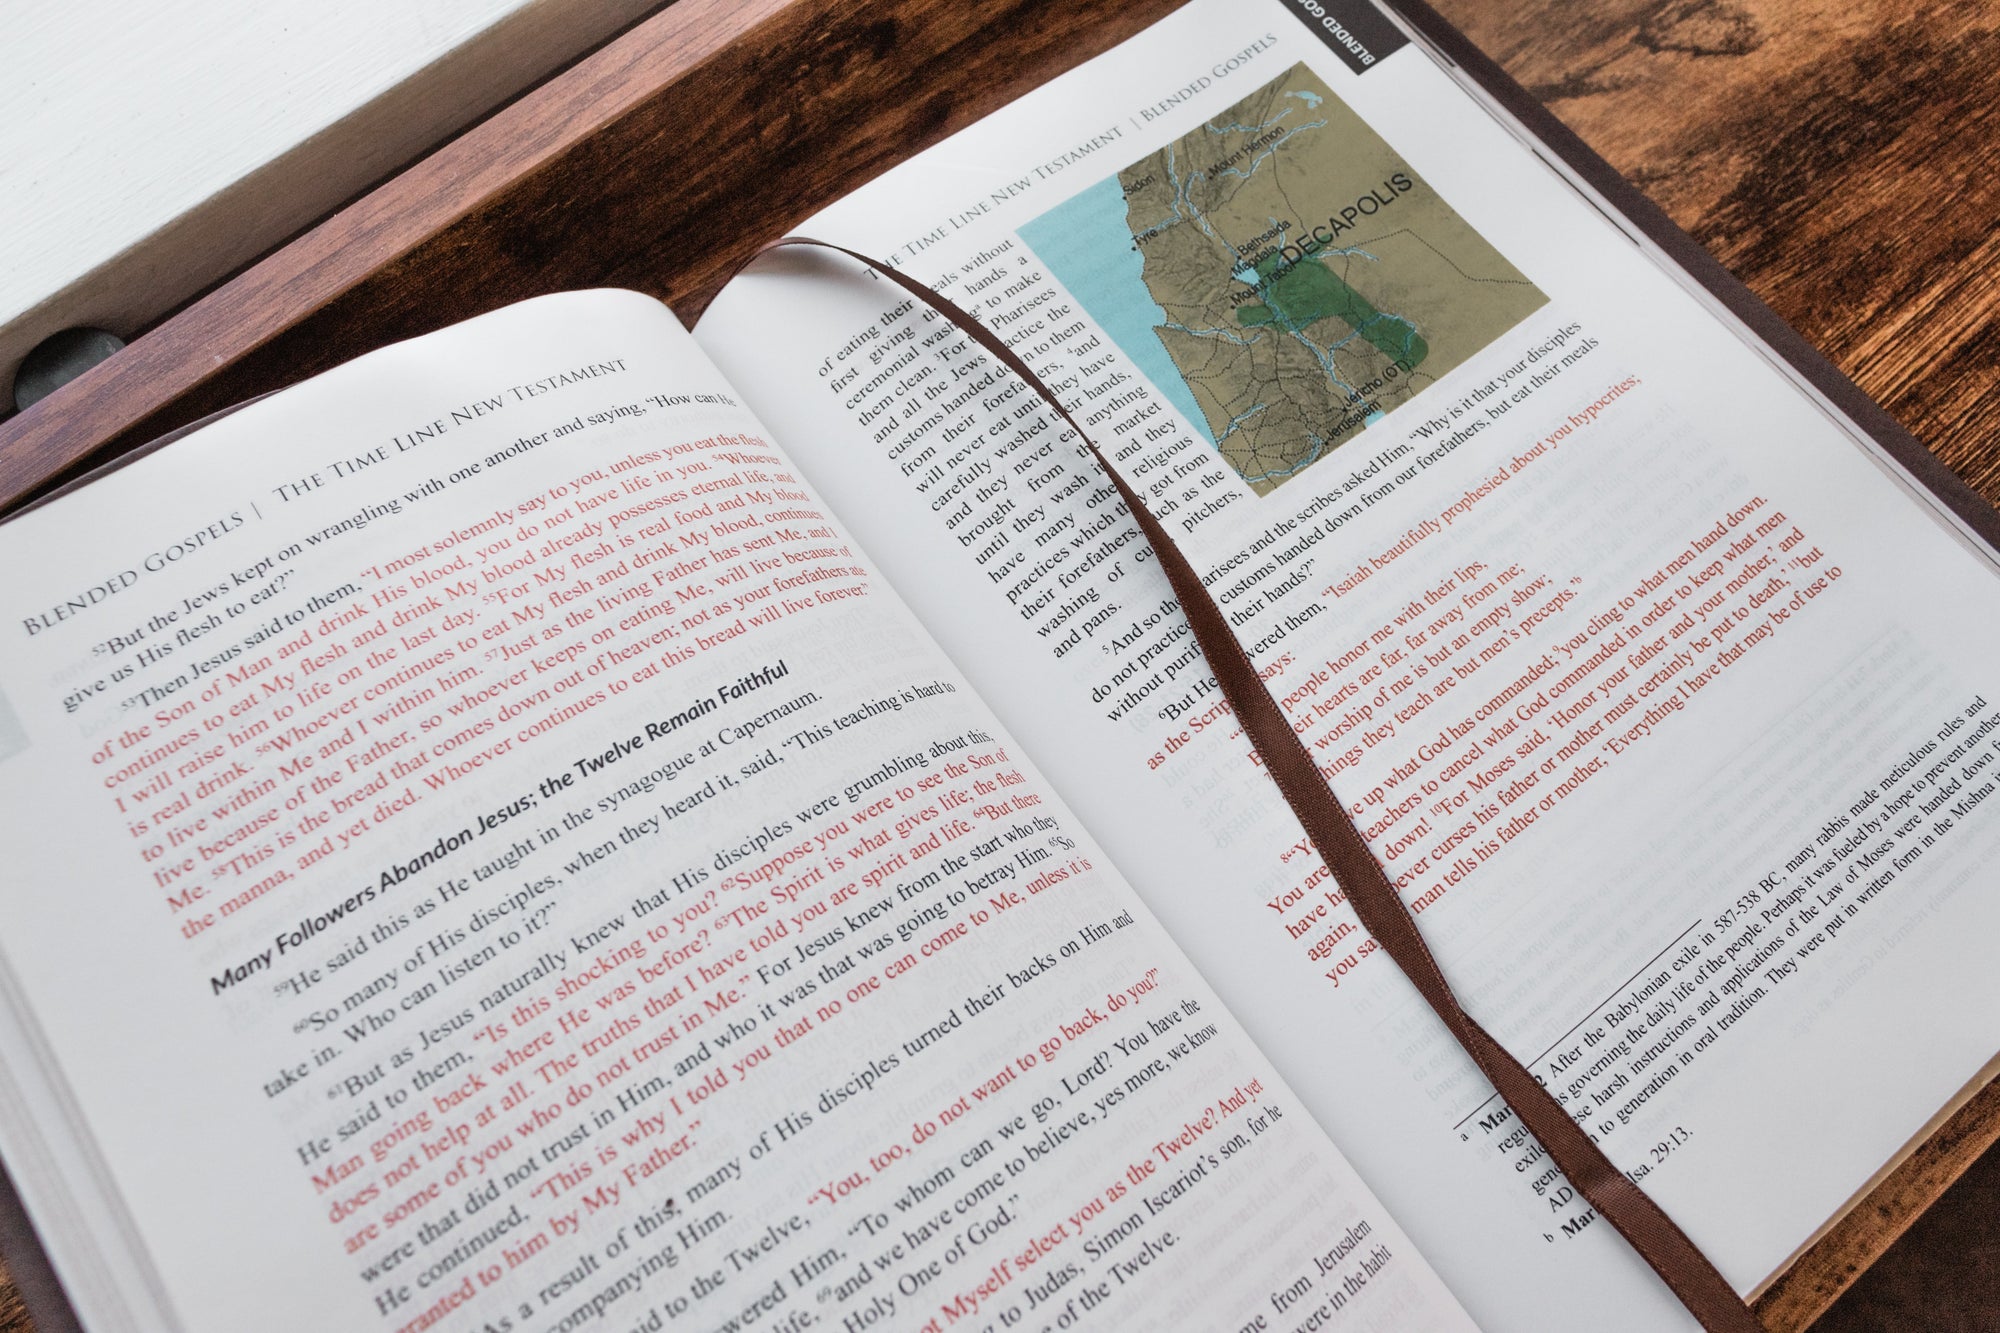 BLENDED GOSPELS | THE TIME LINE NEW TESTAMENT
⁵²But the Jews kept on wrangling with one another and saying, “How can He
give us His flesh to eat?”
⁵³Then Jesus said to them, “I most solemnly say to you, unless you eat the flesh
of the Son of Man and drink His blood, you do not have life in you. ⁵⁴Whoever
continues to eat My flesh and drink My blood already possesses eternal life, and
I will raise him to life on the last day. ⁵⁵For My flesh is real food and My blood
is real drink. ⁵⁶Whoever continues to eat My flesh and drink My blood, continues
to live within Me and I within him. ⁵⁷Just as the living Father has sent Me, and I
live because of the Father, so whoever keeps on eating Me, will live because of
Me. ⁵⁸This is the bread that comes down out of heaven; not as your forefathers ate
the manna, and yet died. Whoever continues to eat this bread will live forever.”
Many Followers Abandon Jesus; the Twelve Remain Faithful
⁵⁹He said this as He taught in the synagogue at Capernaum.
⁶⁰So many of His disciples, when they heard it, said, “This teaching is hard to
take in. Who can listen to it?”
⁶¹But as Jesus naturally knew that His disciples were grumbling about this,
He said to them, “Is this shocking to you? ⁶²Suppose you were to see the Son of
Man going back where He was before? ⁶³The Spirit is what gives life; the flesh
does not help at all. The truths that I have told you are spirit and life. ⁶⁴But there
are some of you who do not trust in Me.” For Jesus knew from the start who they
were that did not trust in Him, and who it was that was going to betray Him. ⁶⁵So
He continued, “This is why I told you that no one can come to Me, unless it is
granted to him by My Father.”
As a result of this, many of His disciples turned their backs on Him and
accompanying Him.
said to the Twelve, “You, too, do not want to go back, do you?”
answered Him, “To whom can we go, Lord? You have the
life, ⁶⁹and we have come to believe, yes more, we know
Holy One of God.”
not Myself select you as the Twelve? And yet
to Judas, Simon Iscariot’s son, for he
of the Twelve.
from Jerusalem
were in the habit
THE TIME LINE NEW TESTAMENT | BLENDED GOSPELS
BLENDED
of eating their meals without
first giving their hands a
ceremonial washingᵃ to make
them clean. ³For the Pharisees
and all the Jews practice the
customs handed down to them
from their forefathers, ⁴and
will never eat until they have
carefully washed their hands,
and they never eat anything
brought from the market
until they wash it and they
have many other religious
practices which they got from
their forefathers, such as the
washing of cups, pitchers,
and pans.
Sidon
Mount Hermon
Tyre
DECAPOLIS
Bethsaida
Magdala
Mount Tabor
Jericho (OT)
Jerusalem
⁵And so the Pharisees and the scribes asked Him, “Why is it that your disciples
do not practice customs handed down from our forefathers, but eat their meals
without their hands?”
⁶But He answered them, “Isaiah beautifully prophesied about you hypocrites;
as the Scripture says:
people honor me with their lips,
their hearts are far, far away from me;
worship of me is but an empty show;
things they teach are but men’s precepts.’ᵇ
⁸“You give up what God has commanded; ⁹you cling to what men hand down.
You are teachers to cancel what God commanded in order to keep what men
have handed down! ¹⁰For Moses said, ‘Honor your father and your mother,’ and
again, ‘Whoever curses his father or mother must certainly be put to death,’ ¹¹but
you say man tells his father or mother, ‘Everything I have that may be of use to
ᵃ 2 After the Babylonian exile in 587-538 BC, many rabbis made meticulous rules and
governing the daily life of the people. Perhaps it was fueled by a hope to prevent another
exile harsh instructions and applications of the Law of Moses were handed down
to generation in oral tradition. They were put in written form in the Mishna
AD
ᵇ Isa. 29:13.